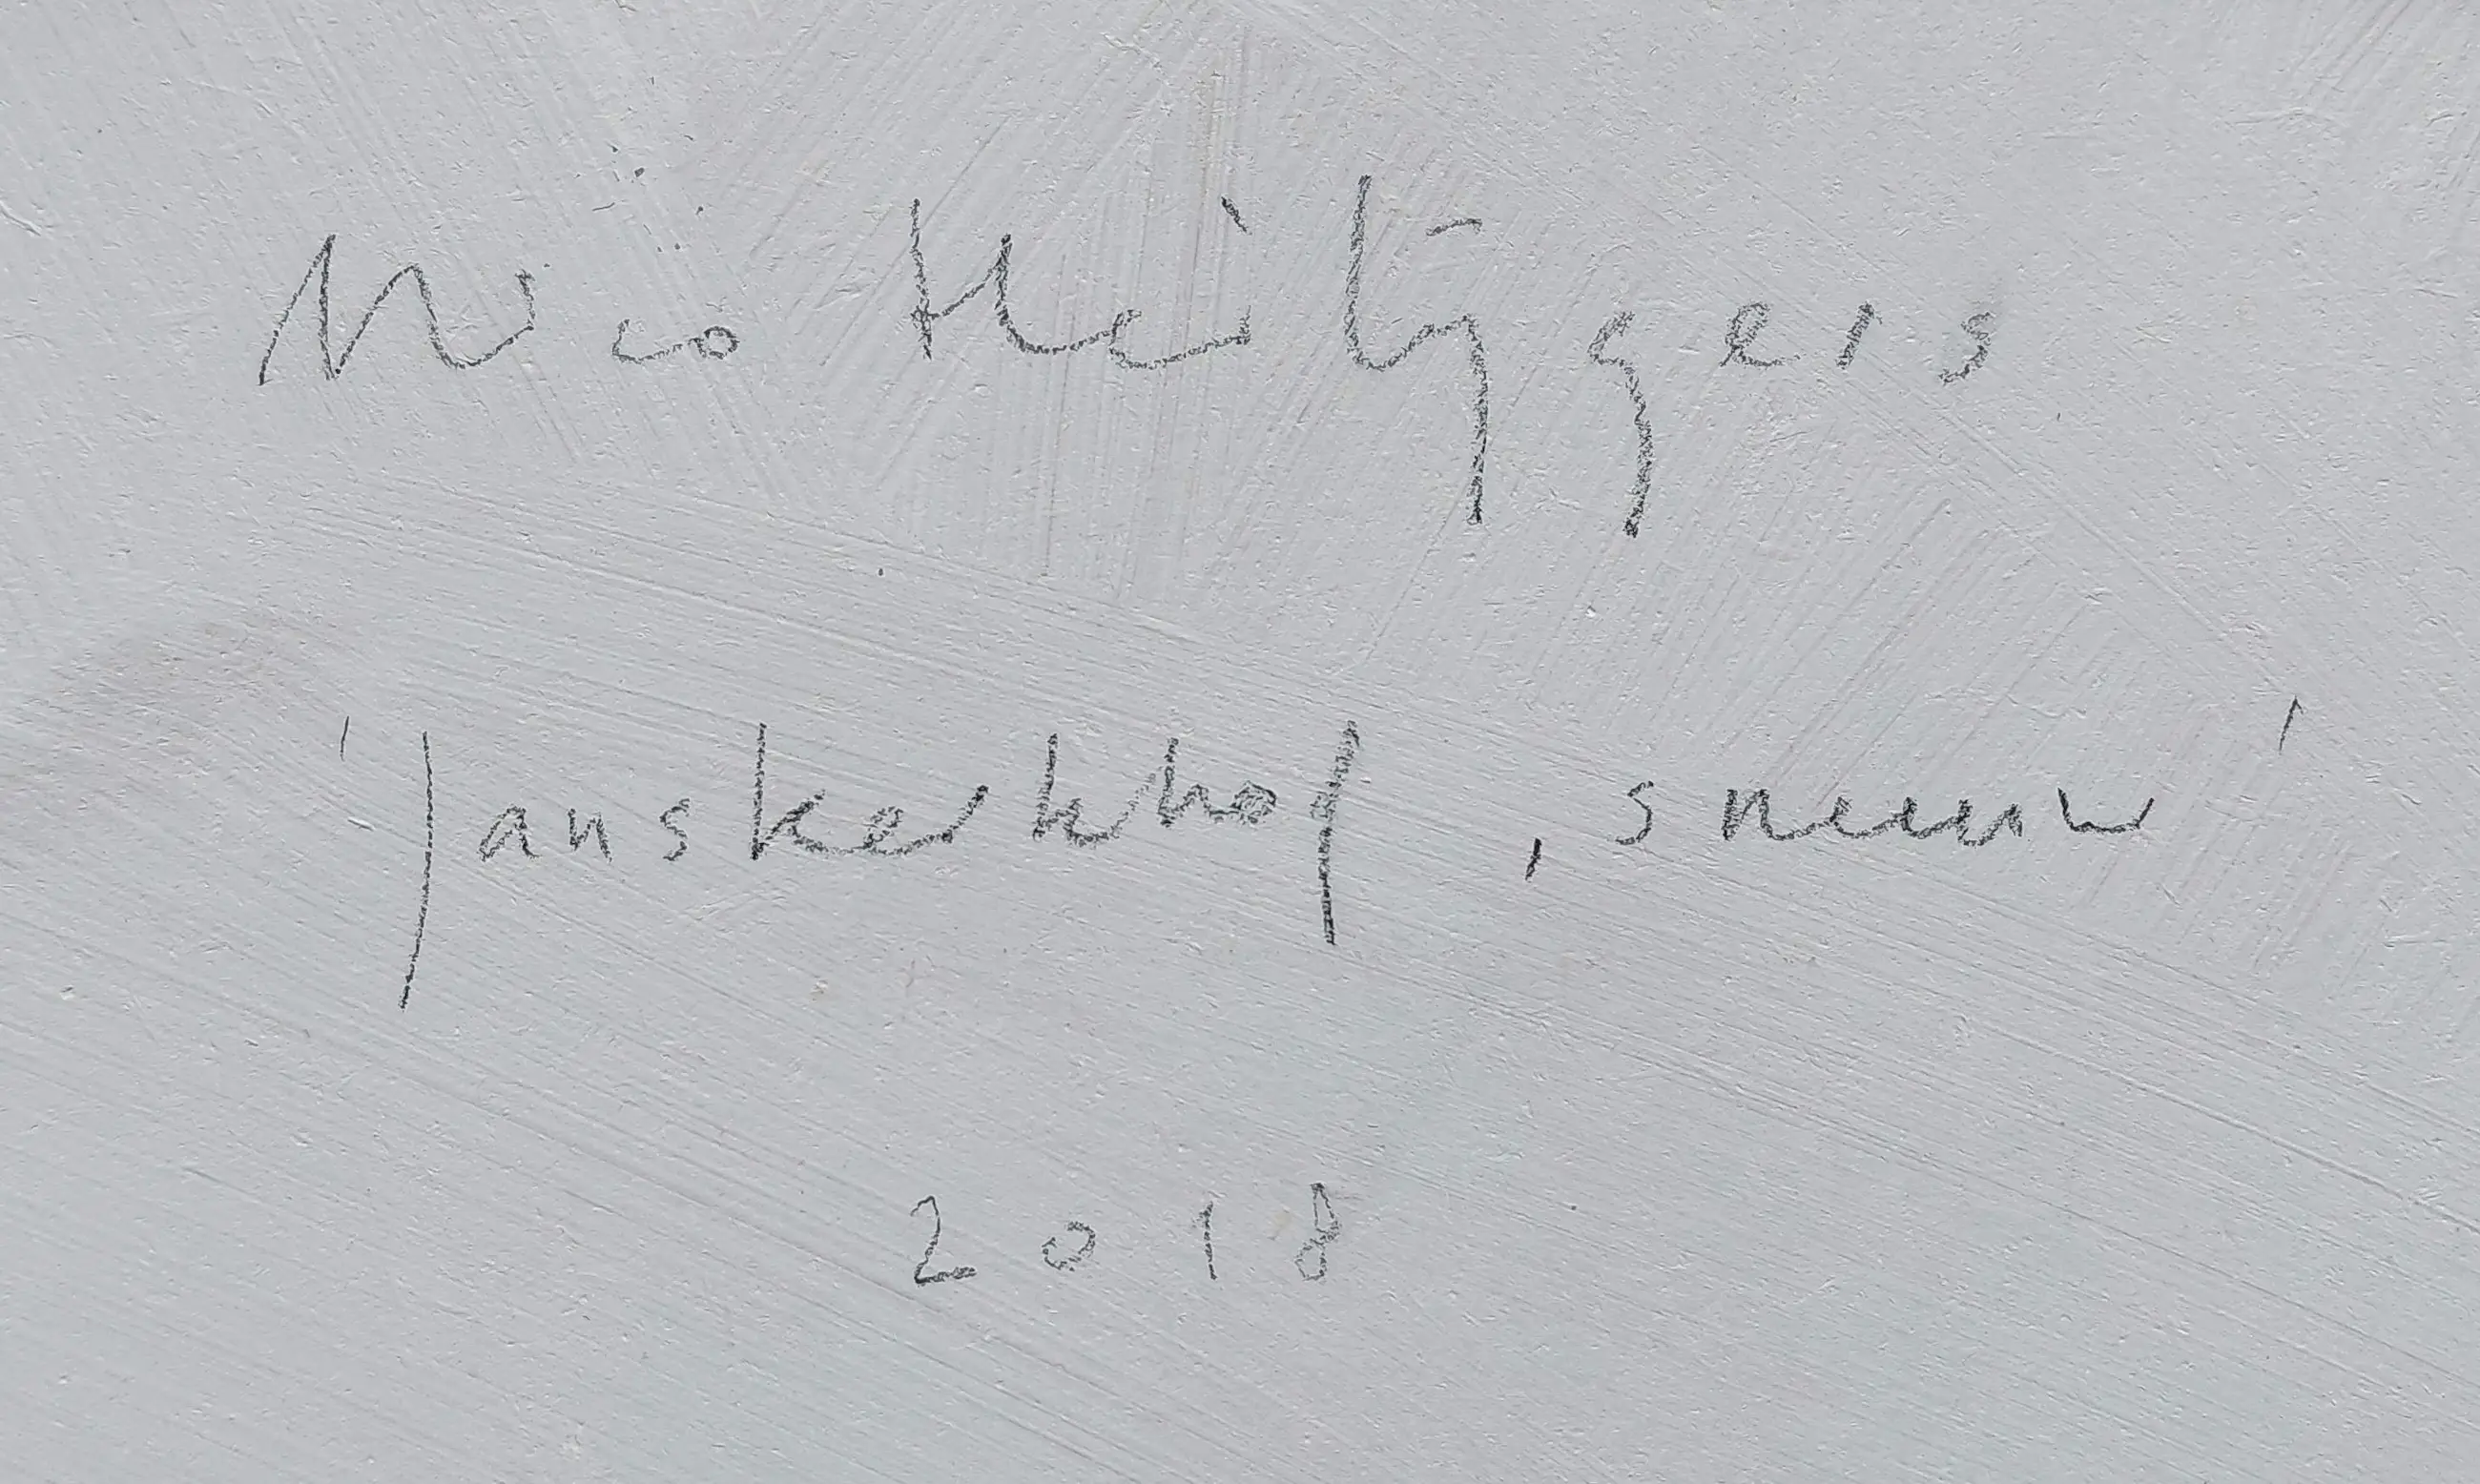 Nico Heilijgers
'Janskerkhof, sneeuw'
2018